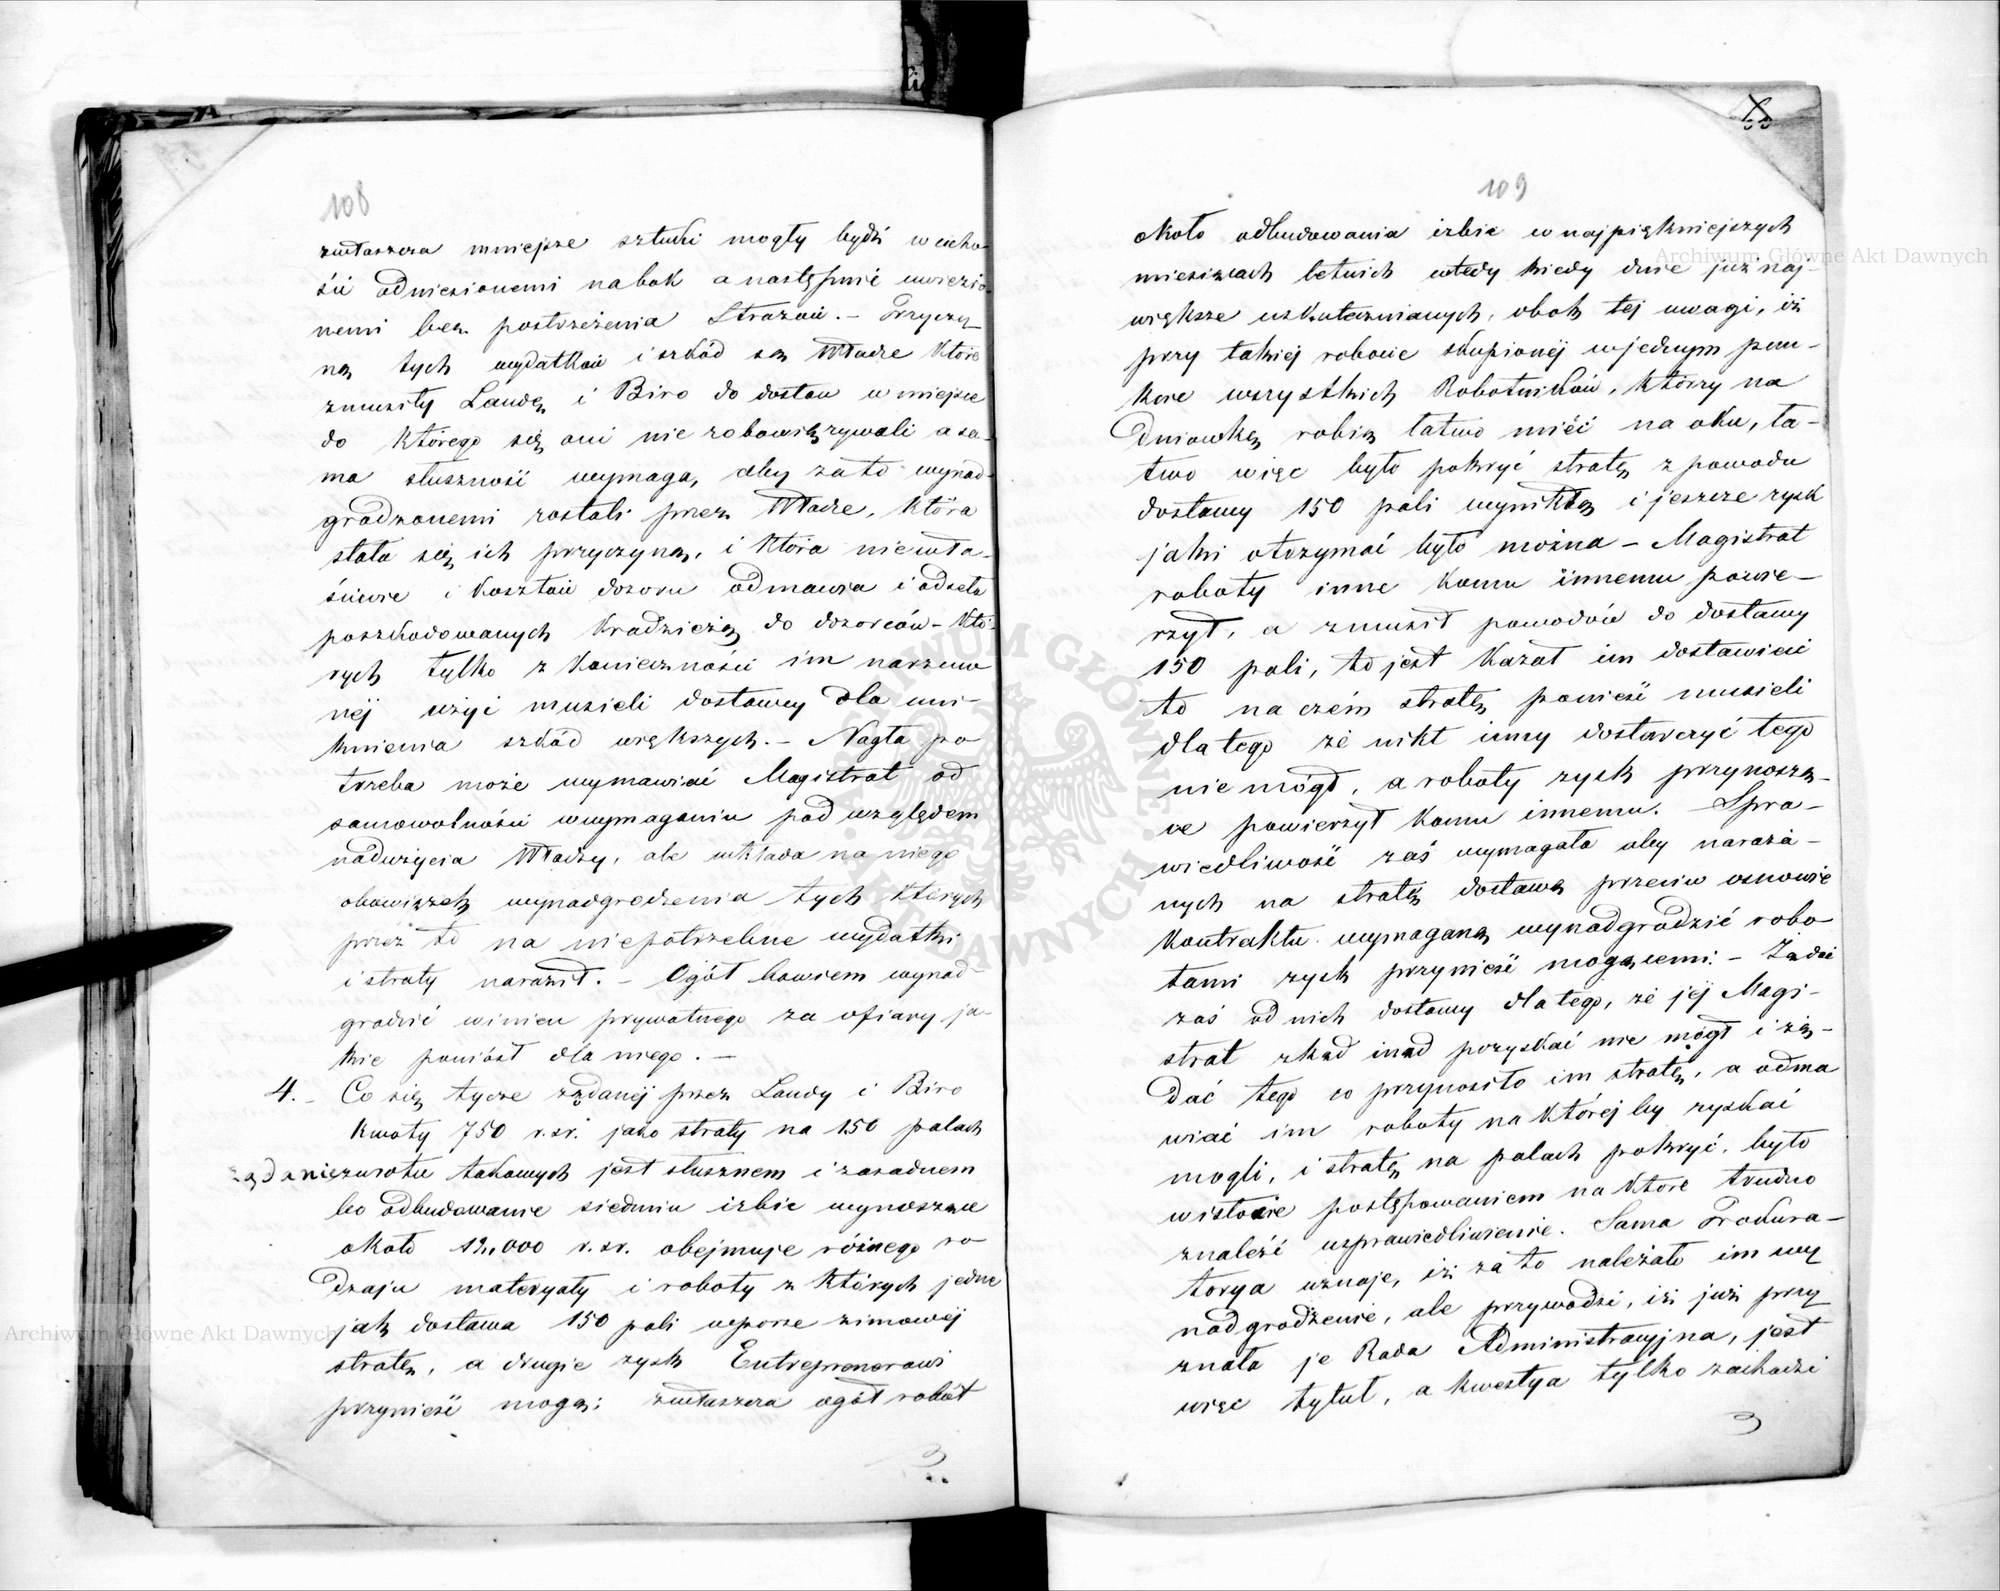 108
zwłaszcza mniejsze sztuki mogły bydź w cicho-
ści odniesionemi na bok a następnie uwiezio-
nemi bez postrzeżenia Strażów. – Przyczy
ną tych wydatków i szkód są Władze które
zmusiły Laudę i Biro do dostaw w miejsce
do którego się oni nie zobowiązywali a sa-
ma słuszność wymaga, aby za to wynad-
grodzonemi zostali przez Władze, która
stała się ich przyczyną, i która niewła-
ściwie i kosztów dozoru odmawia i odseła
poszkodowanych kradzieżą do dozorców – któ-
rych tylko z konieczności im narzuco
nej użyć musieli dostawcy dla uni-
knienia szkód większych. – Nagła po
trzeba może wymawiać Magistrat od
samowolności w wymaganiu pod względem
nadużycia Władzy, ale wkłada na niego
obowiązek wynadgrodzenia tych których
przez to na niepotrzebne wydatki
i straty naraził. – Ogół bowiem wynad-
grodzić winien prywatnego za ofiary ja-
kie poniósł dla niego. –
4. – Co się tycze żądanej przez Laudy i Biro
kwoty 750 r. sr. jako straty na 150 palach
żądanie zwrotu takowych jest słusznem i zasadnem
bo odbudowanie siedmiu izbic wynoszące
około 12,000 r. sr. obejmuje różnego ro
dzaju materyały i roboty z których jedne
jak dostawa 150 pali w porze zimowej
stratę, a drugie zysk Entreprenerowi
przynieść mogą; zwłaszcza ogół robót
109
około odbudowania izbic w najpiękniejszych
miesiącach letnich wtedy kiedy dnie już naj-
większe uskutecznianych, obok tej uwagi, iż
przy takiej robocie skupionej w jednym pun-
kcie wszystkich Robotników, którzy na
dniówkę robią łatwo mieć na oku, ła-
two więc było pokryć stratę z powodu
dostawy 150 pali wynikłą i jeszcze zysk
jaki otrzymać było można – Magistrat
roboty inne komu innemu powie-
rzył, a zmusił powodów do dostawy
150 pali, to jest kazał im dostawić
to na czém stratę ponieść musieli
dla tego że nikt inny dostarczyć tego
nie mógł, a roboty zysk przynoszą-
ce powierzył komu innemu. Spra-
wiedliwość zaś wymagała aby naraża-
nych na stratę dostawą przeciw osnowie
kontraktu wymaganą wynadgrodzić robo
tami zysk przynieść mogącemi. – Żądać
zaś od nich dostawy dla tego, że jej Magi-
strat zkąd inąd pozyskać nie mógł i żą-
dać tego co przynosiło im stratę, a odma
wiać im roboty na którejby zyskać
mogli, i stratę na palach pokryć, było
w istocie postępowaniem na które trudno
znaleźć usprawiedliwienie. Sama Prokura-
torya uznaje, iż za to należało im wy
nadgrodzenie, ale przywodzi, iż już przy
znała je Rada Administracyjna, jest
więc tytuł, a kwestya tylko zachodzi
Archiwum Główne Akt Dawnych
Archiwum Główne Akt Dawnych
ARCHIWUM GŁÓWNE AKT DAWNYCH